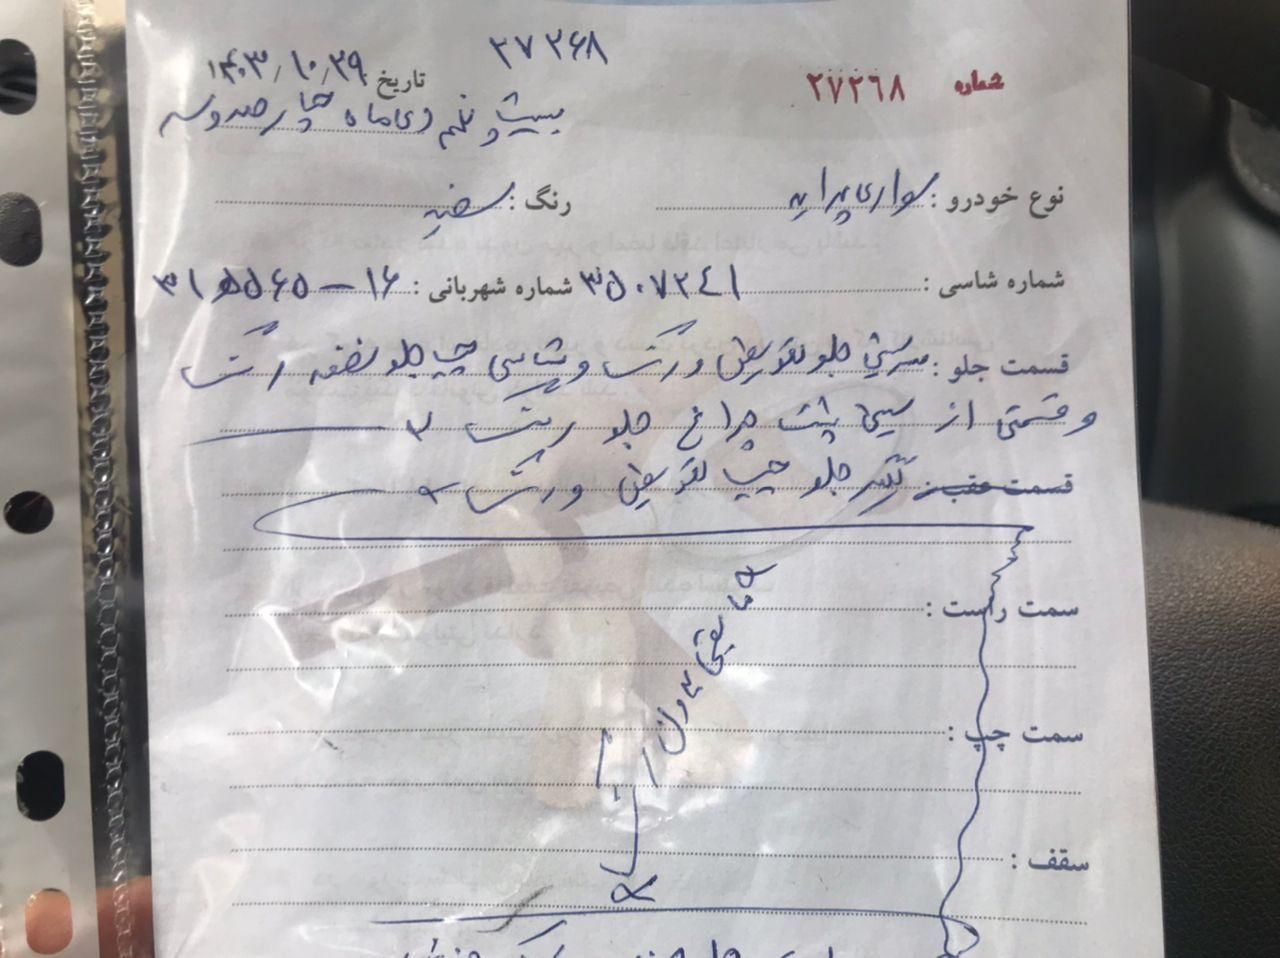 ۲۷۲۶۸
شماره ۲۷۲۶۸
تاریخ ۱۴۰۳/۱۰/۲۹
بیست و نهم دی ماه چهارصد و سه
نوع خودرو : سواری پراید رنگ : سفید
شماره شاسی : ۳۵۰۷۲۴۱ شماره شهربانی : ۱۶ - ۵۶۵
قسمت جلو : سرسینی جلو تعویض و رنگ و شاسی چپ جلو رنگ
و قسمتی از سینی پشت چراغ جلو رنگ
قسمت عقب : گلگیر جلو چپ تعویض و رنگ
سمت راست :
مابقی بدون رنگ
سمت چپ :
سقف :